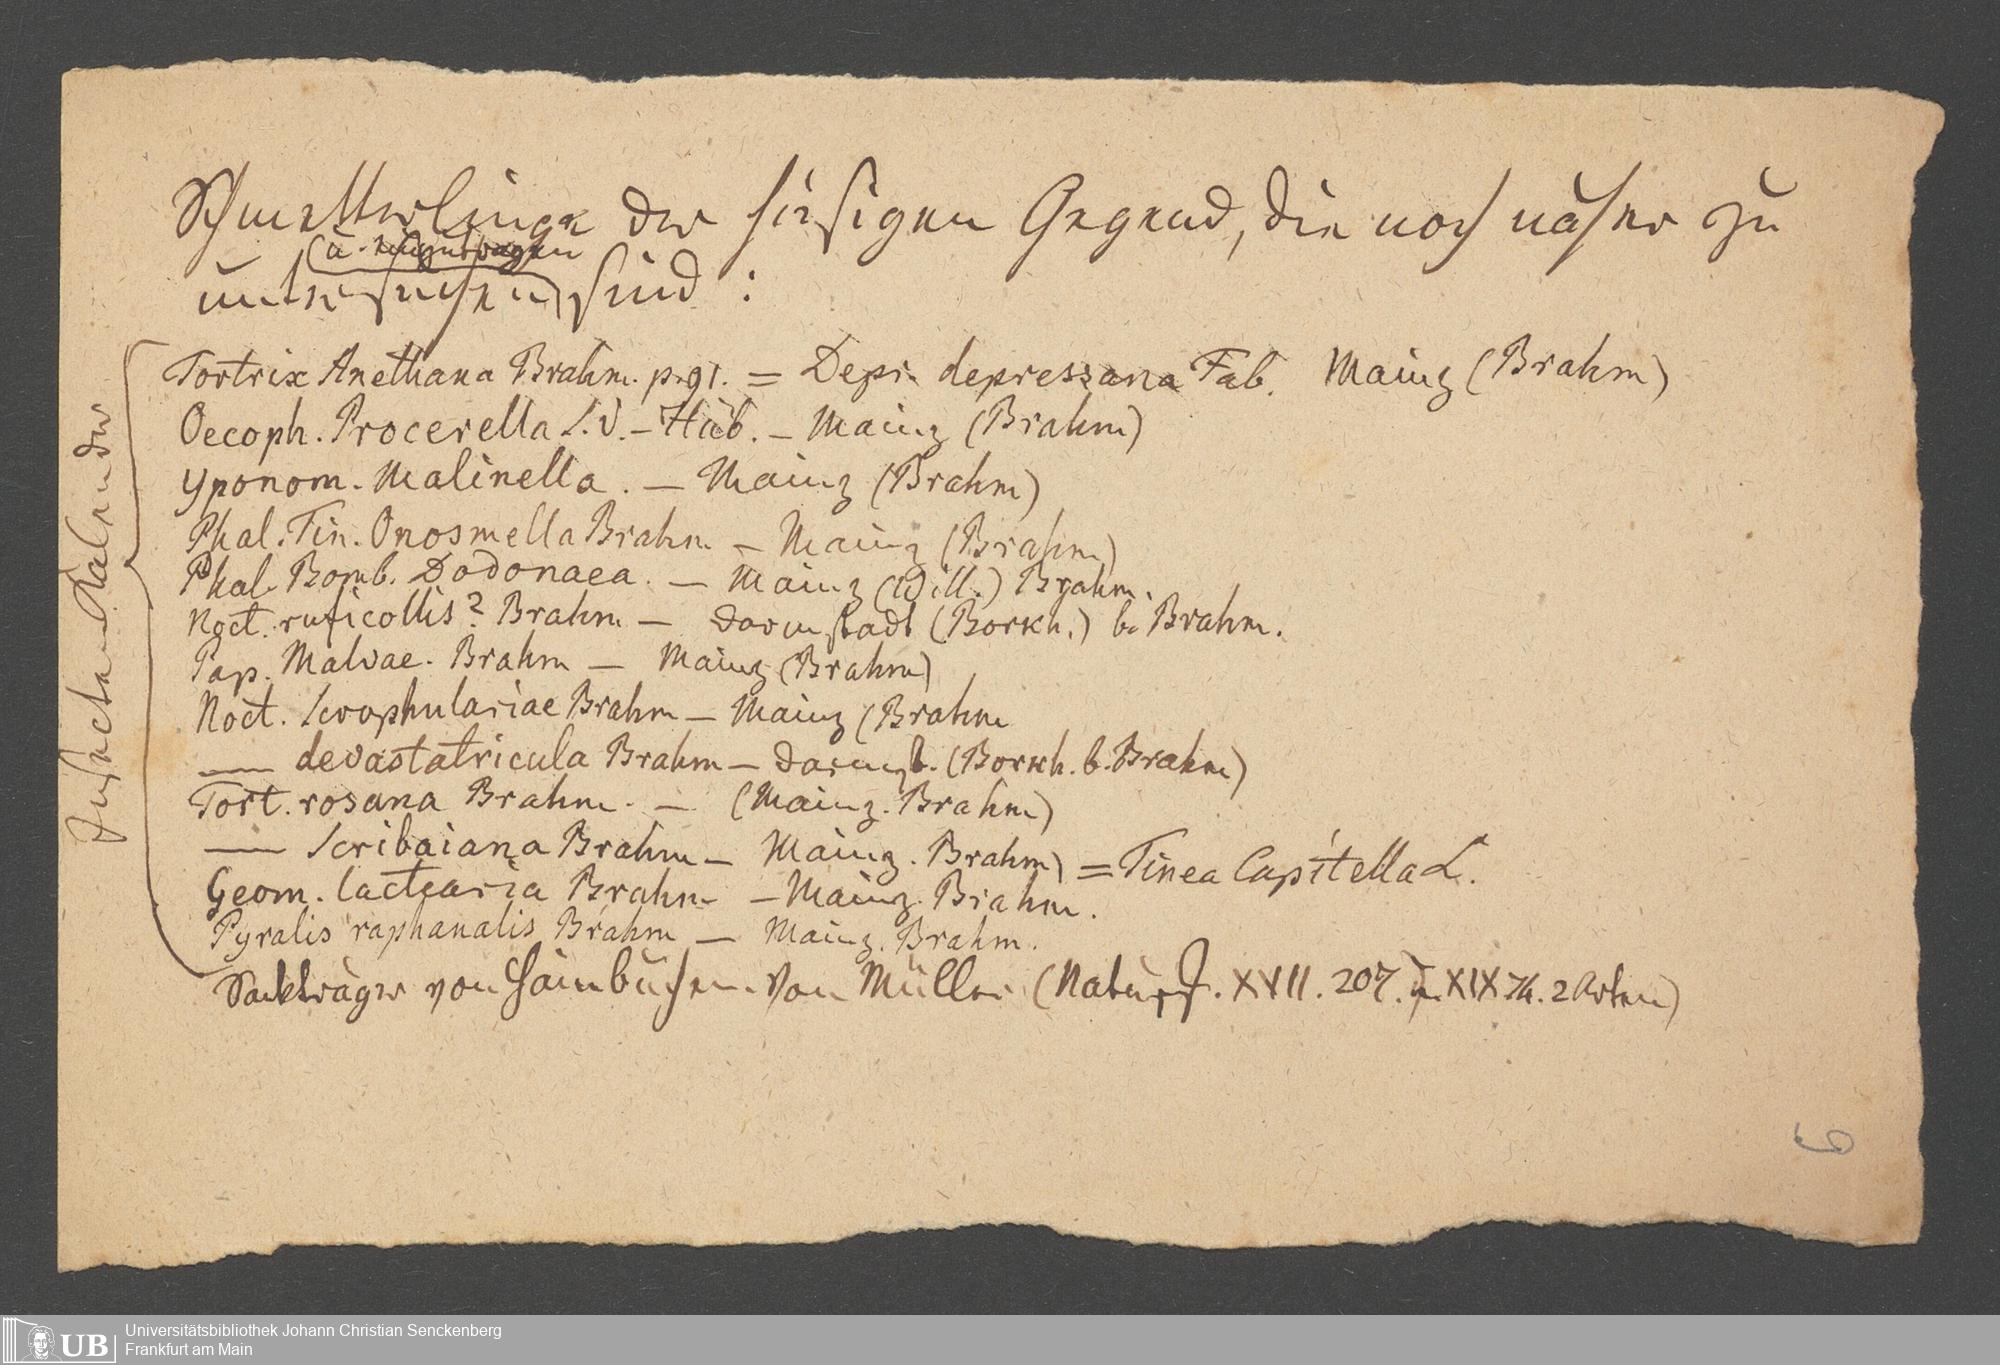 Schmetterlinge der hiesigen Gegend, die noch näher zu
u. einzutragen
untersuchen sind :
Insecten Kalender
Tortrix Anethana Brahm. p. 91. = Depr. depressana Fab. Mainz (Brahm)
Oecoph. Procerella S.V. – Hüb. – Mainz (Brahm)
Yponom. Malinella. – Mainz (Brahm)
Phal. Tin. Onosmella Brahm – Mainz (Brahm)
Phal. Bomb. Dodonaea. – Mainz (Will.) Brahm.
Noct. ruficollis? Brahm – Darmstadt (Borkh.) b. Brahm.
Pap. Malvae. Brahm – Mainz (Brahm)
Noct. Scrophulariae Brahm – Mainz (Brahm
— devastatricula Brahm – Darmst. (Borkh. b. Brahm)
Tort. rosana Brahm. – (Mainz. Brahm)
— Scribaiana Brahm – Mainz. Brahm) = Tinea Capitella L.
Geom. lactearia Brahm – Mainz. Brahm.
Pyralis raphanalis Brahm – Mainz. Brahm.
Sackträger von Hainbuchen. von Müller (Naturf. XVII. 207. u. XIX 74. 2 Arten)
6
UB Universitätsbibliothek Johann Christian Senckenberg
Frankfurt am Main